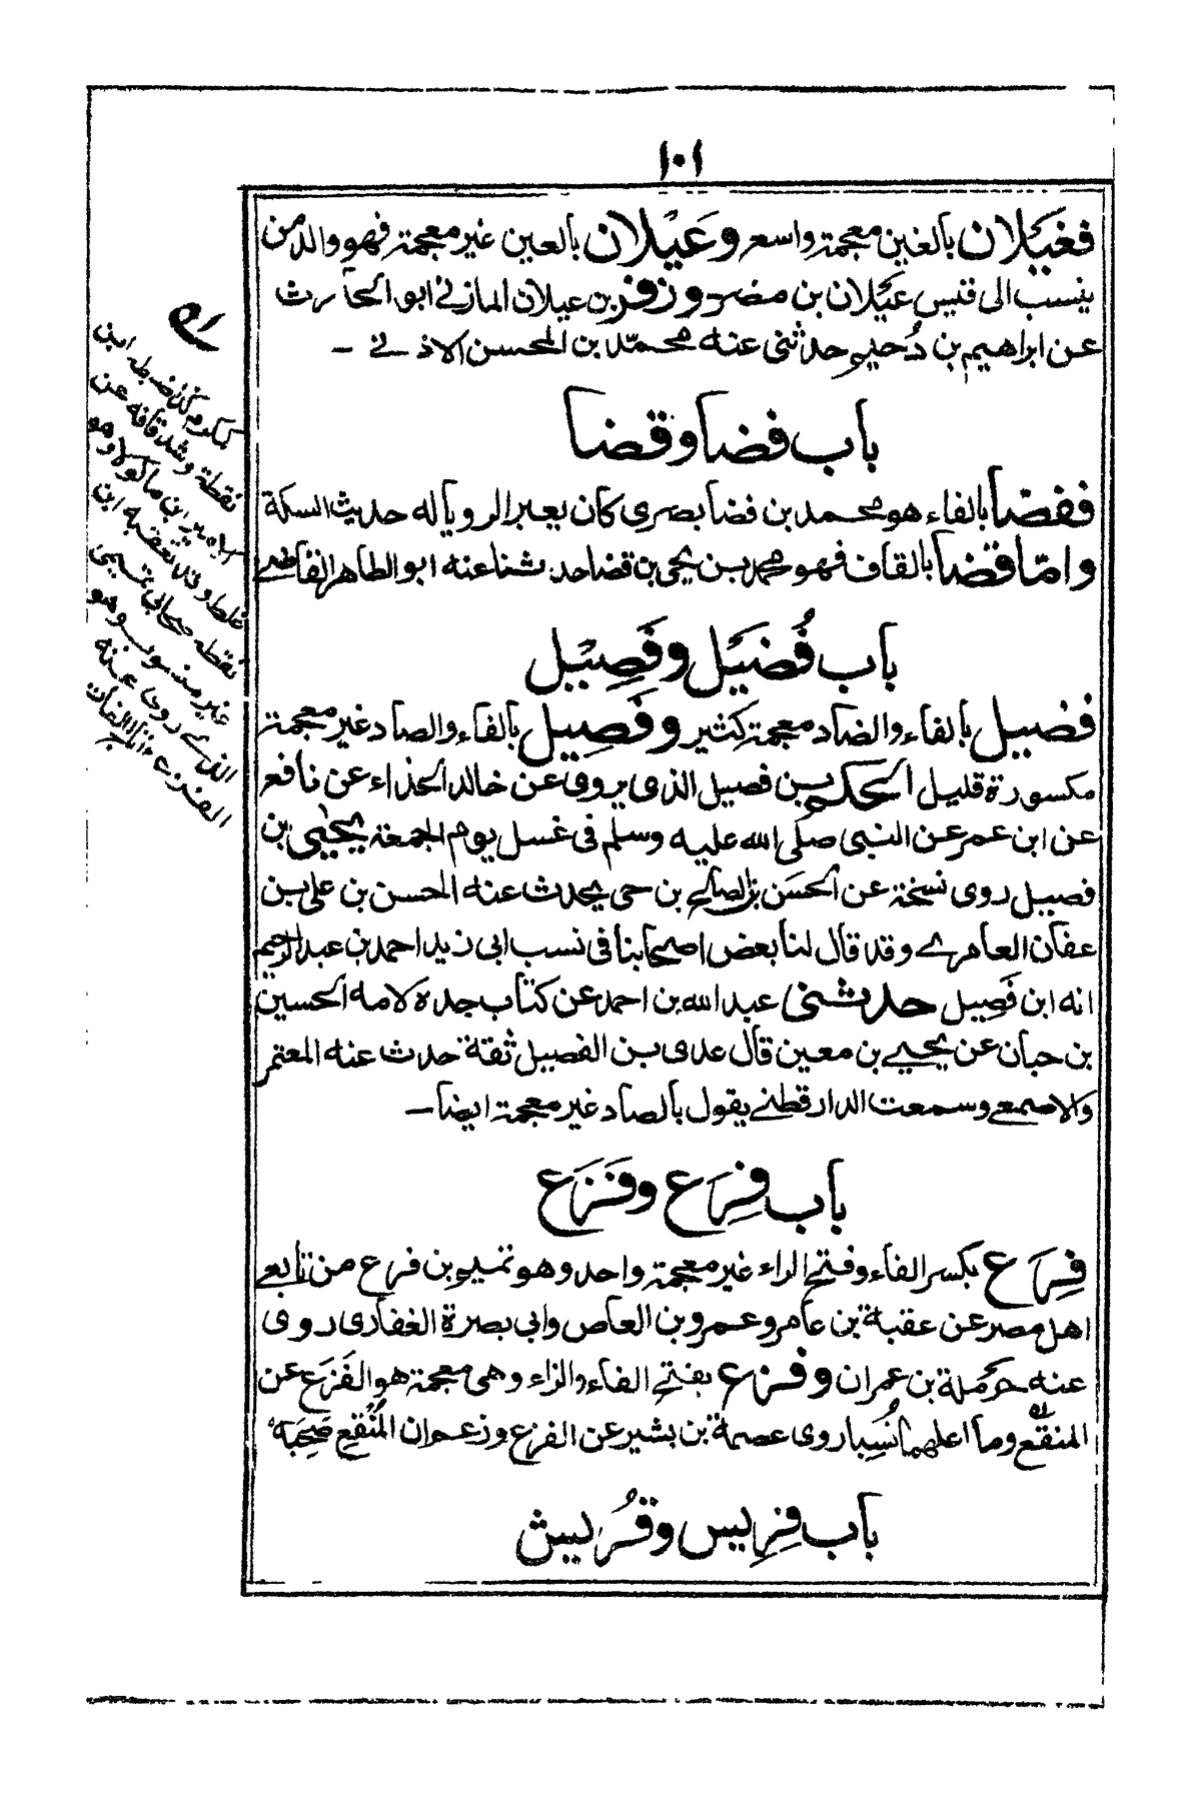 ١٠١
فغَيَلان بالغين معجمة واسع وعَيْلان بالعين غير معجمة فهو والد من
ينسب الى قيس عَيَلان بن مضر وزفر بن عيلان المازني ابو الحارث
عن ابراهيم بن دُحيم حدثني عنه محمّد بن المحسن الاذني -
باب فضا وقضا
ففضا بالفاء هو محمد بن فضا بصري كان يعبر الرويا له حديث السكة
وامّا قضا بالقاف فهو محمد بن يحيى بن قضا حدثنا عنه ابو الطاهر القاضي
باب فُضَيَل وفَصِيْل
فضيل بالفاء والضاد معجمة كثير وفَصِيل بالفاء والصاد غير معجمة
مكسورة قليل الحكم بن فصيل الذي يروى عن خالد الحذاء عن نافع
عن ابن عمر عن النبى صلى الله عليه وسلم فى غسل يوم الجمعة يحيى بن
فصيل روى نسخة عن الحسَن بن صالح بن حى يحدث عنه الحسن بن على بن
عفان العامرے وقد قال لنا بعض اصحابنا فى نسب ابى زيد احمد بن عبد الرحيم
انه ابن فَصِيل حدثنى عبد الله بن احمد عن كتاب جده لامه الحسين
بن حبان عن يحيے بن معين قال عدى بن الفصيل ثقة حدث عنه المعتمر
والاصمعے وسمعت الدارقطنے يقول بالصاد غير معجمة ايضا -
باب فِرَع وفَزَع
فِرَع بكسر الفاء وفتح الراء غير معجمة واحد وهو تميم بن فرع من تابعے
اهل مصر عن عقبة بن عامر وعمرو بن العاص وابى بصرة الغفارى روى
عنه حرملة بن عمران وفزع بفتح الفاء والزاء وهى معجمة هو الفَزَع عن
المنقّع وما اعلهما نُسِبا روى عصمة بن بشير عن الفزع وزعم ان المُنْقع صَحِبَه
باب فِرِيس وقُرَيش
نقطة
غلط وقد تعقبه ابن
نقطة
غير منسوب وهو
الذے روى عنه
الفزع